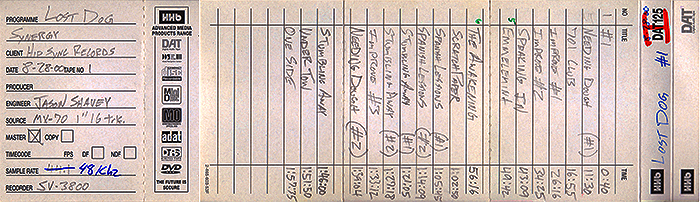 PROGRAMME LOST DOG
SYNERGY
CLIENT HIP SYNC RECORDS
DATE 8-28-00 TAPE NO 1
PRODUCER
ENGINEER JASON SHAVEY
SOURCE MX-70 1" 16 trk.
MASTER COPY
TIMECODE FPS DF NDF
SAMPLE RATE 48 Khz
RECORDER SV-3800
HHB
ADVANCED MEDIA
PRODUCTS RANGE
DAT
disc
MO
adat
DTRS
DVD
THE FUTURE IS
SECURE
NO TITLE TIME
1 #1 0:40
NEEDING DOUGH (#1) 11:30
TWO CLUBS 16:55
IMPROVE #1 26:16
IMPROVE #2 34:25
SPEAKING IN 43:09
5 49:42
6 THE AWAKENING 56:16
SCRATCH PAPER 1:02:30
SPANISH LESSONS (#1) 1:05:35
SPANISH LESSONS (#2) 1:14:09
STUMBLING AWAY (#1) 1:21:05
STUMBLING AWAY (#2) 1:27:18
IMPROVE #3 1:37:12
NEEDING DOUGH (#2) 1:39:04
STUMBLING AWAY 1:46:00
UNDER TOW 1:51:50
ONE SIDE 1:57:35
HHB
LOST DOG #1
DAT125
DAT
HHB